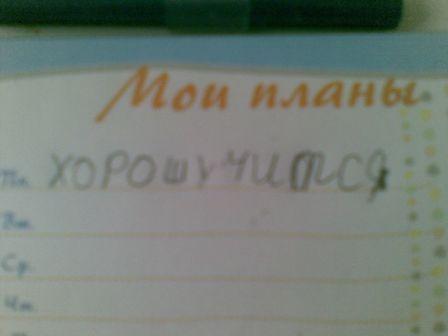 Мои планы
Пн. ХОРОШУЧИТСЯ
Вт.
Ср.
Чт.